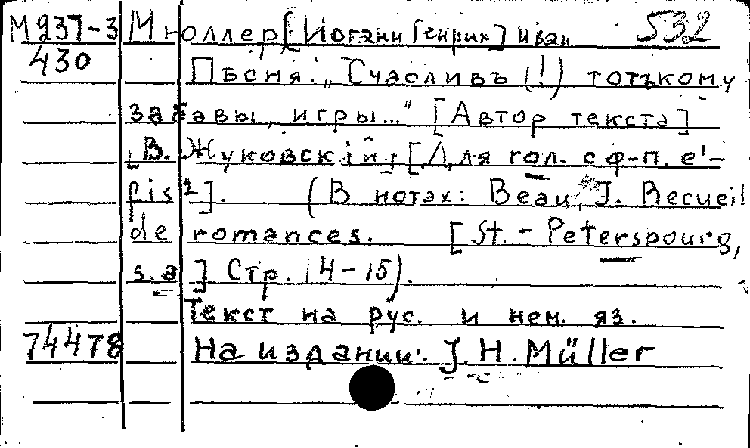 М 237-3 Мюллер [Иоганн Генрих] Иван 532
430 Пѣсня: „Счасливъ (!) тотъ кому
забавы, игры..." [Автор текста]
В. Жуковскій; [Для гол. с ф-п. e¹-
fis²]. (В нотах: Beau, J. Recueil
de romances. [St.-Peterspourg,
s.a] Стр. 14-15).
Текст на рус. и нем. яз.
74478 На издании: J. H. Müller